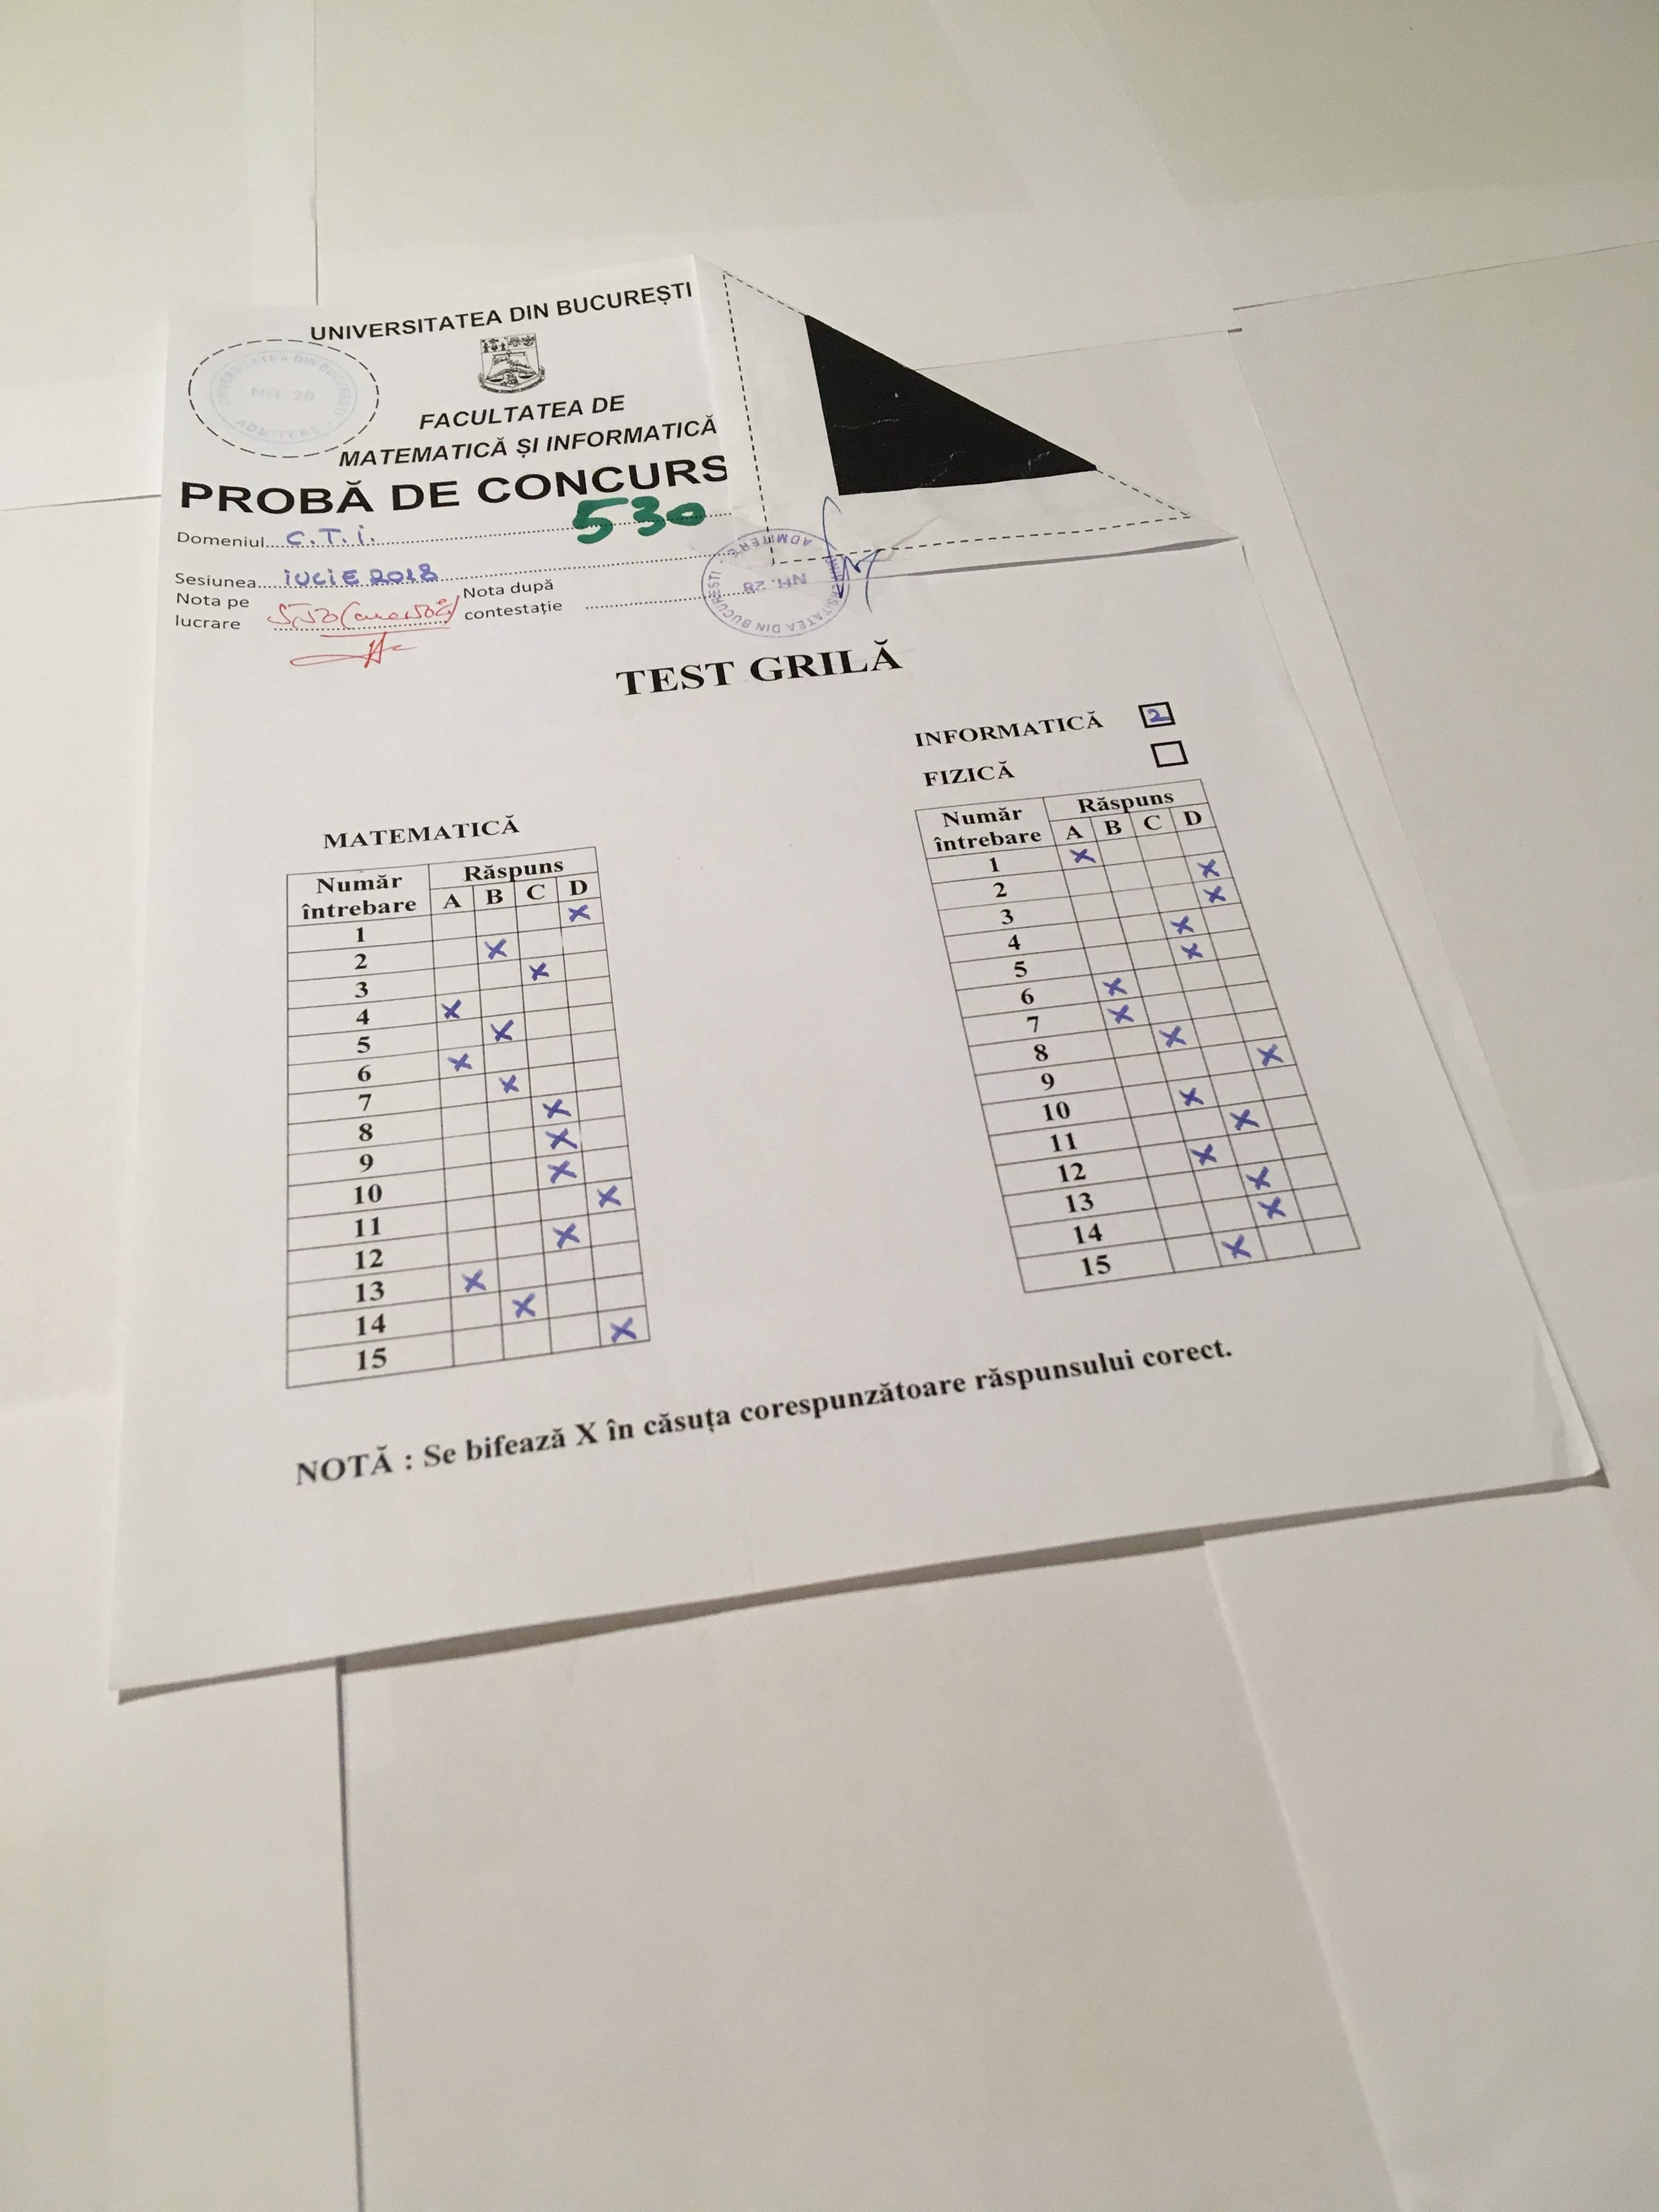 UNIVERSITATEA DIN BUCUREȘTI
UNIVERSITATEA DIN BUCUREȘTI
NR. 28
ADMITERE
FACULTATEA DE
MATEMATICĂ ȘI INFORMATICĂ
PROBĂ DE CONCURS
530
Domeniul C.T.i.
Sesiunea iULiE 2018
Nota pe lucrare 5,50
Nota după contestație
UNIVERSITATEA DIN BUCUREȘTI
NR. 28
ADMITERE
TEST GRILĂ
MATEMATICĂ
Număr întrebare Răspuns
A B C D
1 X
2 X
3 X
4 X
5 X
6 X
7 X
8 X
9 X
10 X
11 X
12 X
13 X
14 X
15 X
INFORMATICĂ 2
FIZICĂ
Număr întrebare Răspuns
A B C D
1 X
2 X
3 X
4 X
5 X
6 X
7 X
8 X
9 X
10 X
11 X
12 X
13 X
14 X
15 X
NOTĂ : Se bifează X în căsuța corespunzătoare răspunsului corect.